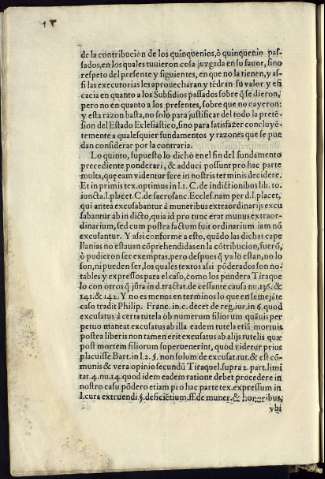 de la contribuciõn de los quinquenios, ò quinquenio pas-
sados, en los quales tuuieron cosa juzgada en su fauor, sino
respeto del presente y siguientes, en que no la tienen, y as-
si las executorias les aprouecharan y tēdran su valor y efi
cacia en quanto a los Subsidios passados sobre q̃ se dieron,
pero no en quanto a los presentes, sobre que no cayeron:
y esta razon basta, no solo para justificar del todo la pretē-
sion del Estado Eclesiastico, sino para satisfazer concluyē-
temente a qualesquier fundamentos y razones que se pue
dan considerar por la contraria.
Lo quinto, supuesto lo dicho en el fin del fundamento
precedente ponderari, & adduci possunt pro hac parte
multa, quę eam videntur fore in nostris terminis decidere.
Et in primis tex. optimus in l. 1. C. de indictionibus lib. 10.
iuncta. l. placet. C. de sacrosanc. Ecclesi. nam per d. l. placet,
qui antea excusabantur à muneribus extraordinarijs excu
sabantur ab indicto, quia id pro tunc erat munus extraor-
dinarium, sed cum postea factum fuit ordinarium iam nõ
excusantur. Y assi conforme a esto, quãdo las dichas cape
llanias no estauan cõprehendidas en la cõtribucion, fuerõ,
ò pudieron ser exemptas, pero despues q̃ ya lo estan, no lo
son, ni pueden ser, los quales textos assi põderados son no-
tables y expressos para el caso, como los pondera Tiraque
lo con otros q̃ jũta in d. tractat. de cessante causa nu. 136. &
141. & 142. Y no es menos en terminos lo que en semejãte
caso tradit Philip. Franc. in c. decet de reg. iur. in 6. quod
excusatus à certa tutela ob numerum filiorum quãuis per
petuo maneat excusatus ab illa eadem tutela etiã mortuis
postea liberis non tamen erit excusatus ab alijs tutelis quę
post mortem filiorum superuenerint, quod videtur prius
placuisse Bart. in l. 2. §. non solum de excusat. tut. & est cõ-
munis & vera opinio secundũ Tiraquel. supra 2. part. limi
tat. 4. nu. 14. quod idem eadem ratione debet procedere in
nostro casu põdero etiam pro hac parte tex. expressum in
l. cura extruendi §. deficientium, ff. de muner. & honoribus,
vbi